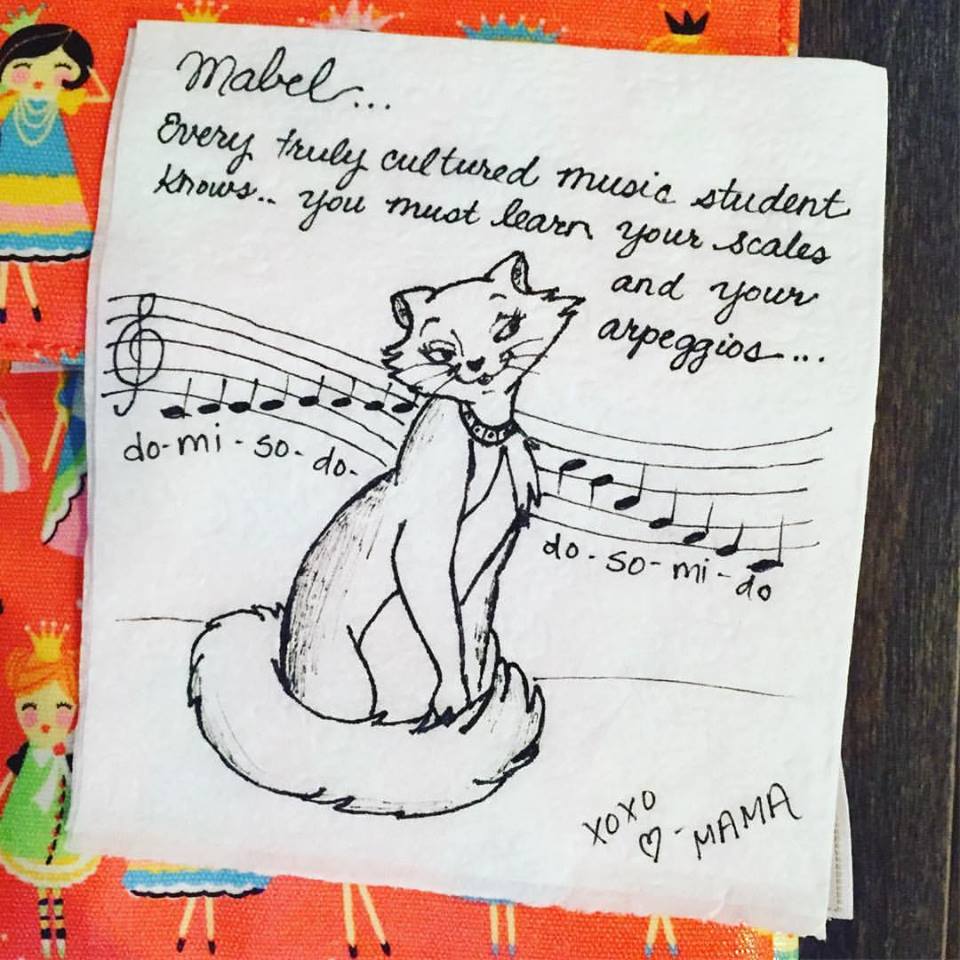 Mabel...
Every truly cultured music student
knows.. you must learn your scales
and your
arpeggios...
do-mi-so-do-
do-so-mi-do
xoxo
♡-MAMA